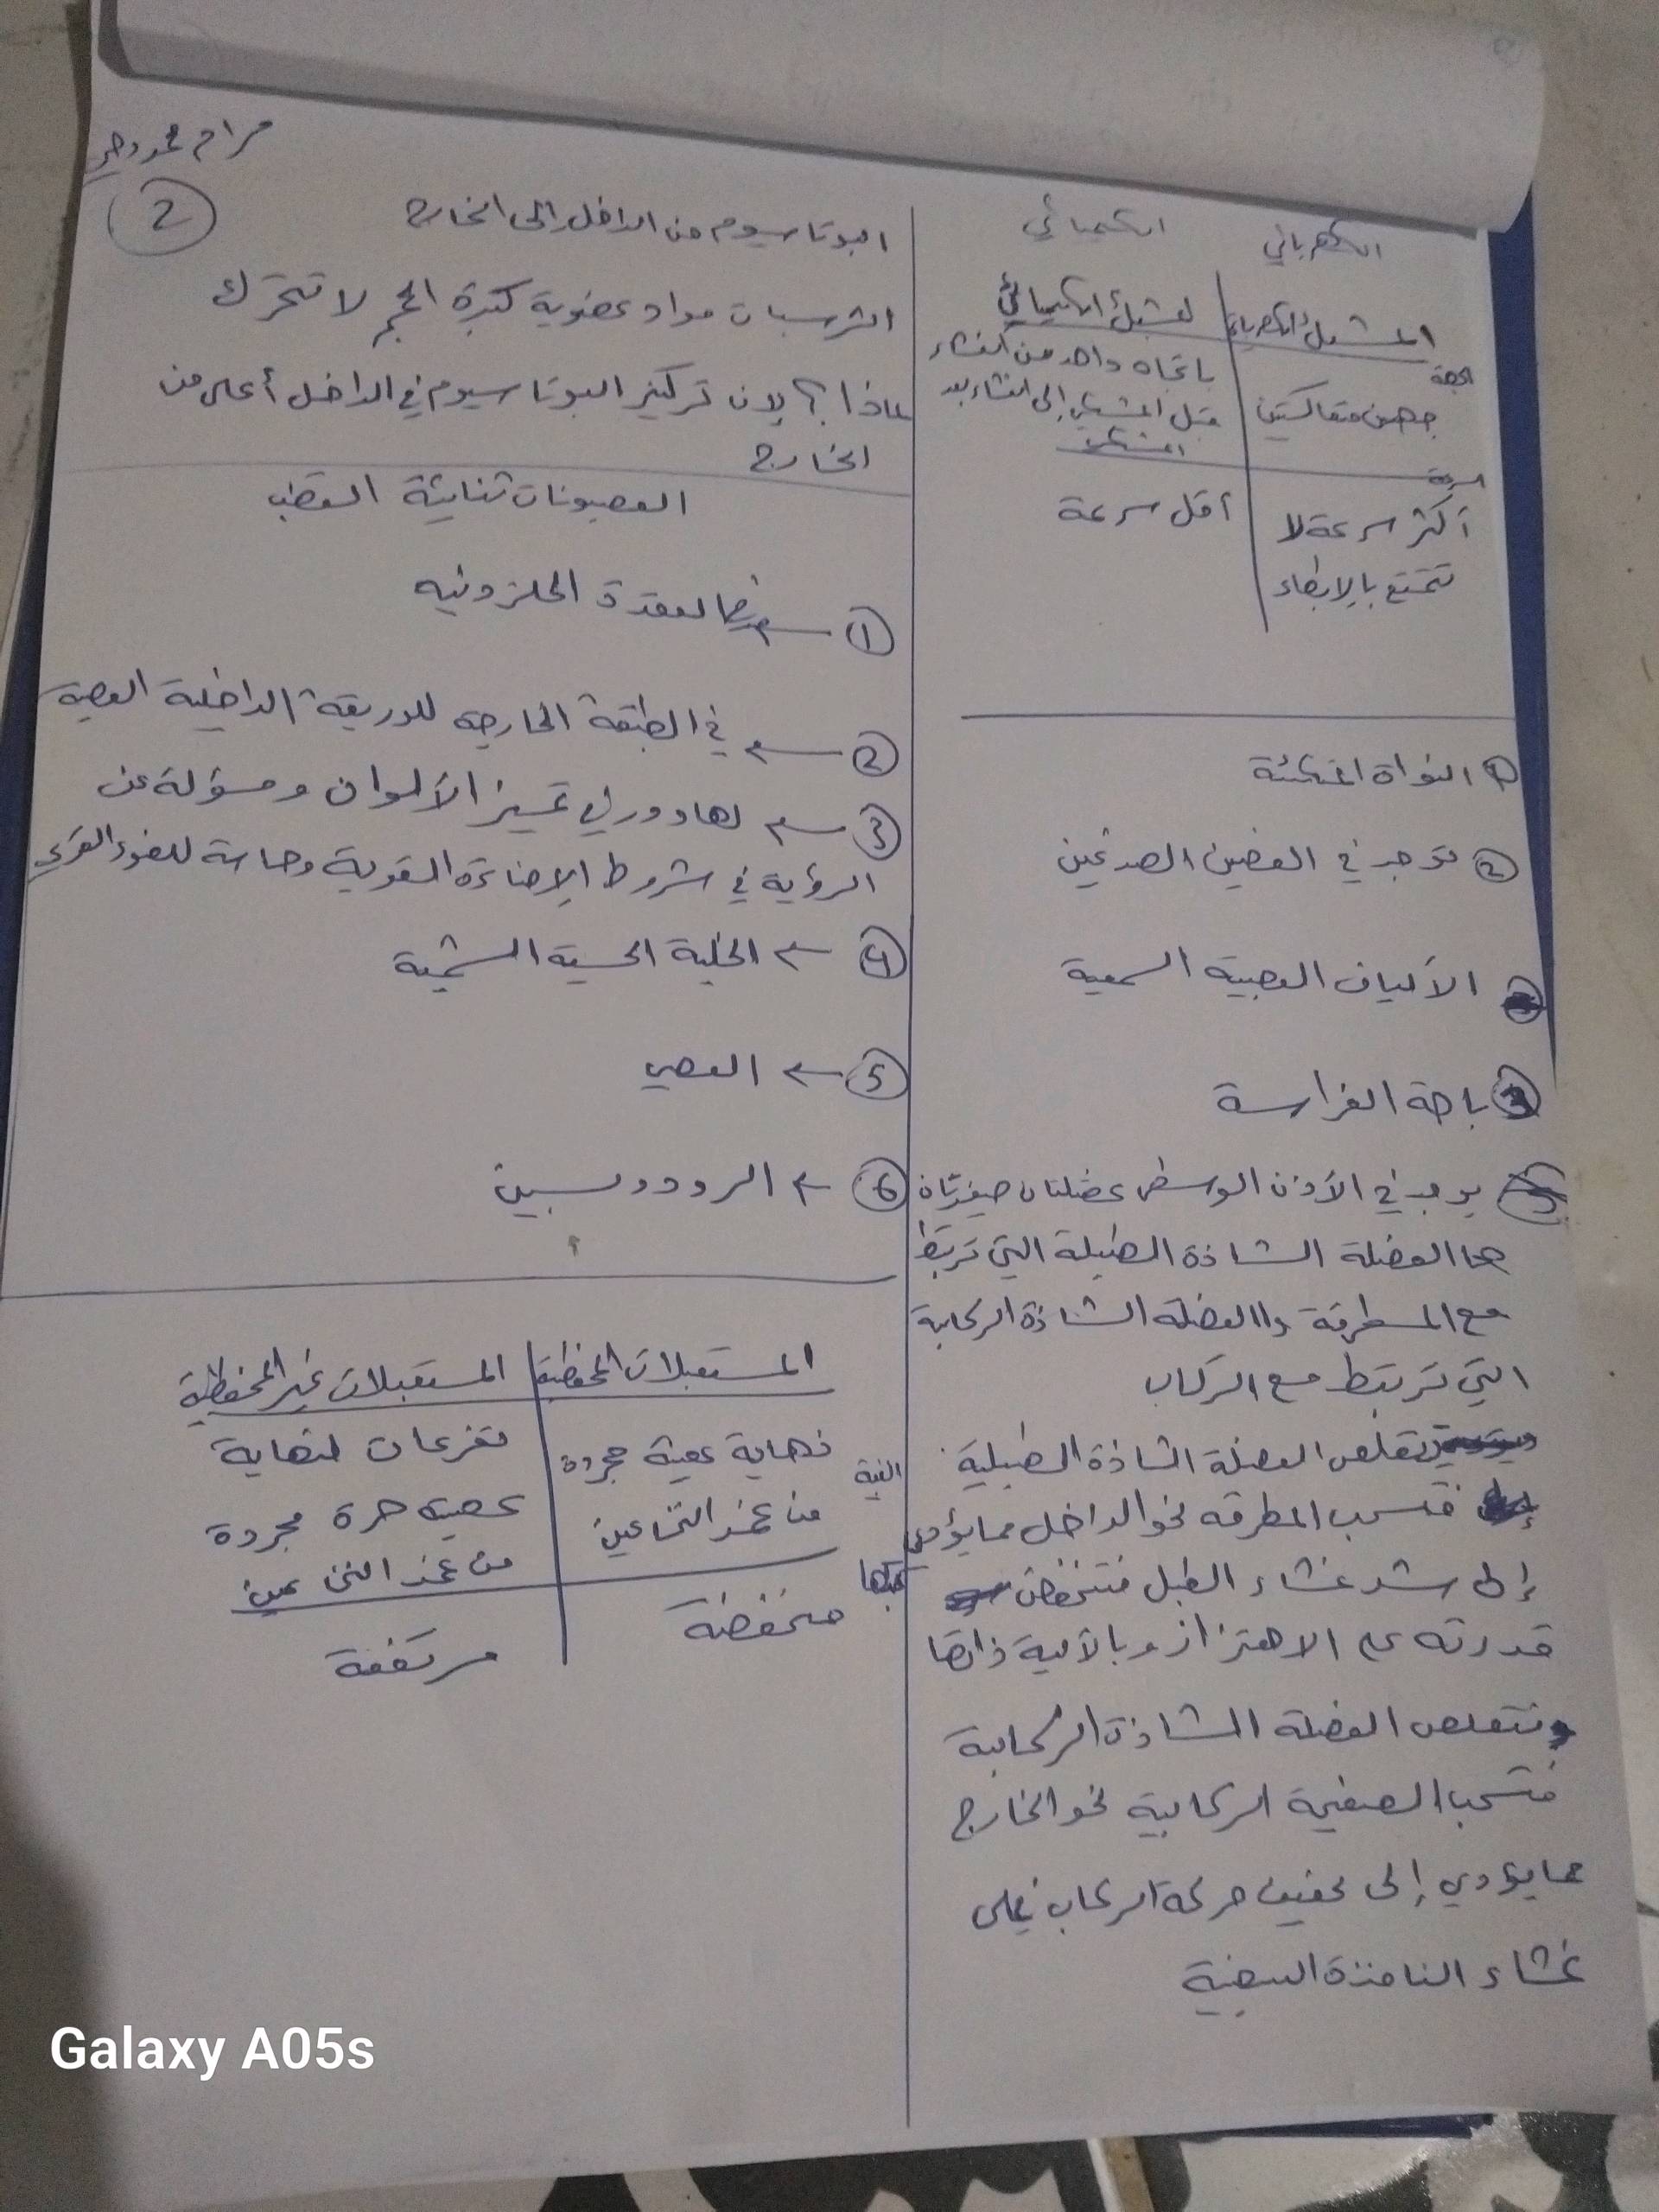 مرام
2
الكهربائي الكيميائي
المشبك الكهربائي المشبك الكيميائي
الجهة
جهتين متعاكستين
باتجاه واحد من الغشاء
قبل المشبكي إلى الغشاء بعد
المشبكي
السرعة
أكثر سرعة لا
تتمتع بالإبطاء
أقل سرعة
1 النواة المتكئة
2 توجد في الفصين الصدغيين
الألياف العصبية السمعية
باحة الفراسة
يوجد في الأذن الوسطى عضلتان صغيرتان
هما العضلة الشادة الطبلية التي ترتبط
مع المطرقة والعضلة الشادة الركابية
التي ترتبط مع الركاب
تتقلص العضلة الشادة الطبلية
فتسحب المطرقة نحو الداخل مما يؤدي
إلى شد غشاء الطبل فتنخفض
قدرته على الاهتزاز وبالآلية ذاتها
وتتقلص العضلة الشادة الركابية
فتسحب الصفيحة الركابية نحو الخارج
مما يؤدي إلى تخفيف حركة الركاب على
غشاء النافذة البيضية
البوتاسيوم من الداخل إلى الخارج
الشرسبات مواد عضوية كبيرة الحجم لا تتحرك
لماذا؟ لان تركيز البوتاسيوم في الداخل أعلى من
الخارج
العصبونات ثنائية القطب
1 ← العقدة الحلزونية
2 ← في الطبقة الخارجية للوريقة الداخلية العصبية
3 ← لها دور في تمييز الألوان ومسؤلة عن
الرؤية في شروط الإضاءة القوية وحاسة للضوء القوي
4 ← الخلية الحسية الشمية
5 ← العصي
6 ← الرودوبسين
المستقبلات المحفظية المستقبلات غير المحفظية
البنية
نهاية عصبية مجردة
من غمد النخاعين
تفرعات لنهاية
عصبية حرة مجردة
من غمد النخاعين
عتبتها
منخفضة
مرتفعة
Galaxy A05s